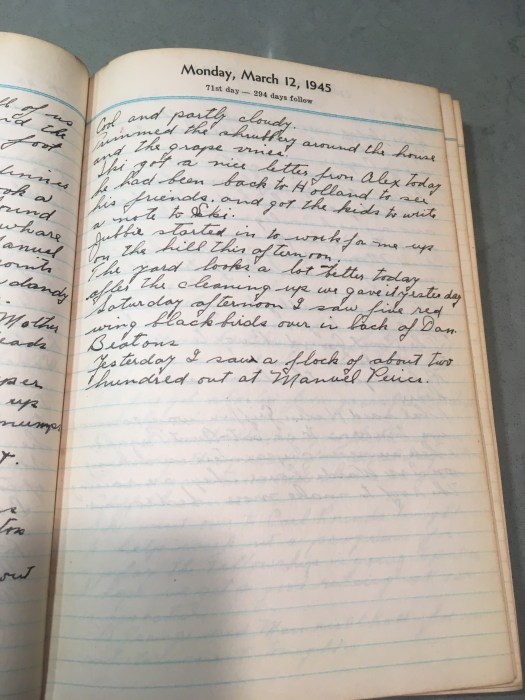 ll of us
nd the
foot
unnies
ook a
ound
where
anuel
points
dandy
Mother
eads
per
up
mumps
y.
s
ton
ow
Monday, March 12, 1945
71st day — 294 days follow
Cool and partly cloudy.
Trimmed the shrubbery around the house
and the grape vines.
Ski got a nice letter from Alex today
he had been back to Holland to see
his friends, and got the kids to write
a note to Ski.
Jubbie started in to work for me up
on the hill this afternoon.
The yard looks a lot better today
after the cleaning up we gave it yesterday
Saturday afternoon I saw five red
wing blackbirds over in back of Dan
Beatons
Yesterday I saw a flock of about two
hundred out at Manuel